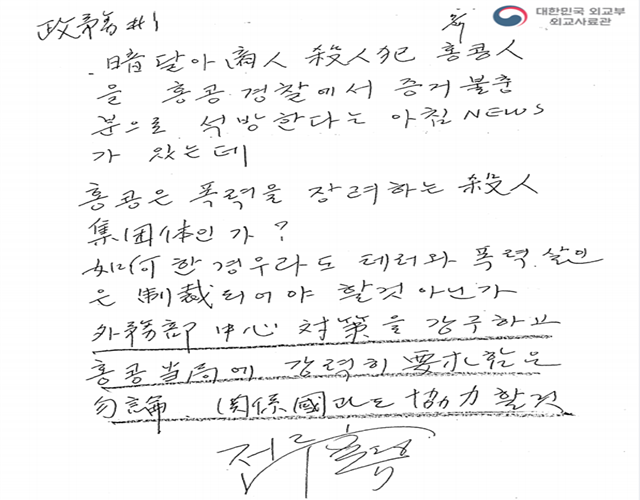 대한민국 외교부
외교사료관
政務#1
商人 殺人犯 홍콩人
을 홍콩 경찰에서 증거 불충
분으로 석방한다는 아침 NEWS
가 있는데
홍콩은 폭력을 장려하는 殺人
集団体인가?
如何한 경우라도 테러와 폭력.살인
은 制裁되어야 할것 아닌가
外務部 中心 対策을 강구하고
홍콩当局에 강력히 要求함은
勿論. 関係國과도 協力할것